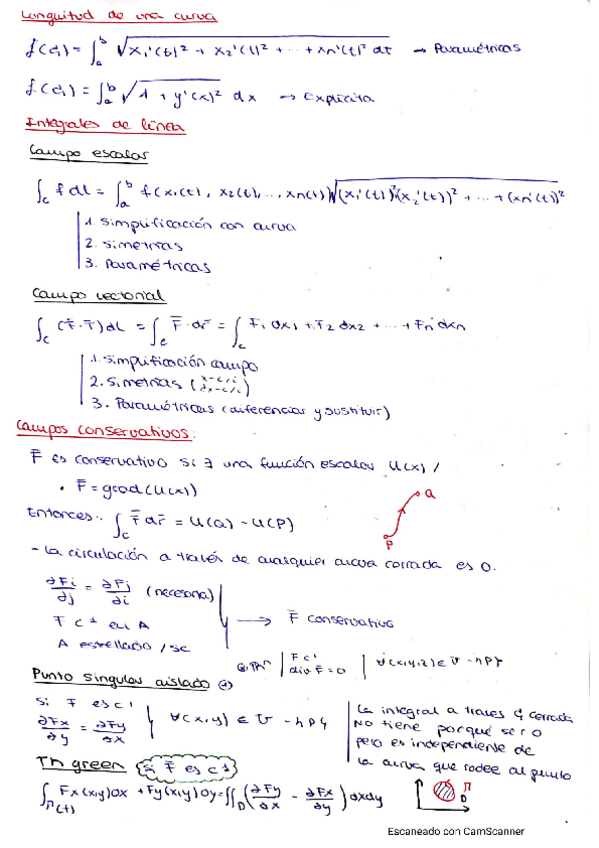 Longuitud de una curva
f(c) = ∫_a^b √(x₁'(t)² + x₂'(t)² + ... + xn'(t)² dt → Paramétricas
f(c) = ∫_a^b √(1 + y'(x)²) dx → Explicita
Integrales de línea
Campo escalar
∫_c f dl = ∫_a^b f(x₁(t), x₂(t), ..., xn(t)) √((x₁'(t))² (x₂'(t))² + ... + (xn'(t))²
1. Simplificación con curva
2. Simetrías
3. Paramétricas
Campo vectorial
∫_c (F̄·T̄) dL = ∫_c F̄·dr̄ = ∫_c F₁ dx₁ + F₂ dx₂ + ... + Fn dxn
1. Simplificación campo
2. Simetrías
3. Paramétricas (diferenciar y sustituir)
Campos conservativos:
F̄ es conservativo si ∃ una función escalar U(x) /
• F̄ = grad(U(x))
Entonces: ∫_c F̄ dr̄ = U(Q) - U(P)
Q
P
- La circulación a través de cualquier curva cerrada es 0.
∂Fi/∂j = ∂Fj/∂i (necesaria)
F̄ C¹ en A
A estrellado / sc
→ F̄ conservativo
F C¹
div F̄ = 0
∀(x,y,z) ∈ U - {P}
Punto singular aislado
Si F̄ es C¹
∂Fx/∂y = ∂Fy/∂x
∀(x,y) ∈ U - {P}
La integral a traves cerrada
NO tiene porqué ser 0
pero es independiente de
la curva que rodee al punto
Th green (si F̄ es C¹)
∫ Fx(x,y)dx + Fy(x,y)dy = ∬_D (∂Fy/∂x - ∂Fx/∂y) dxdy
D
Escaneado con CamScanner